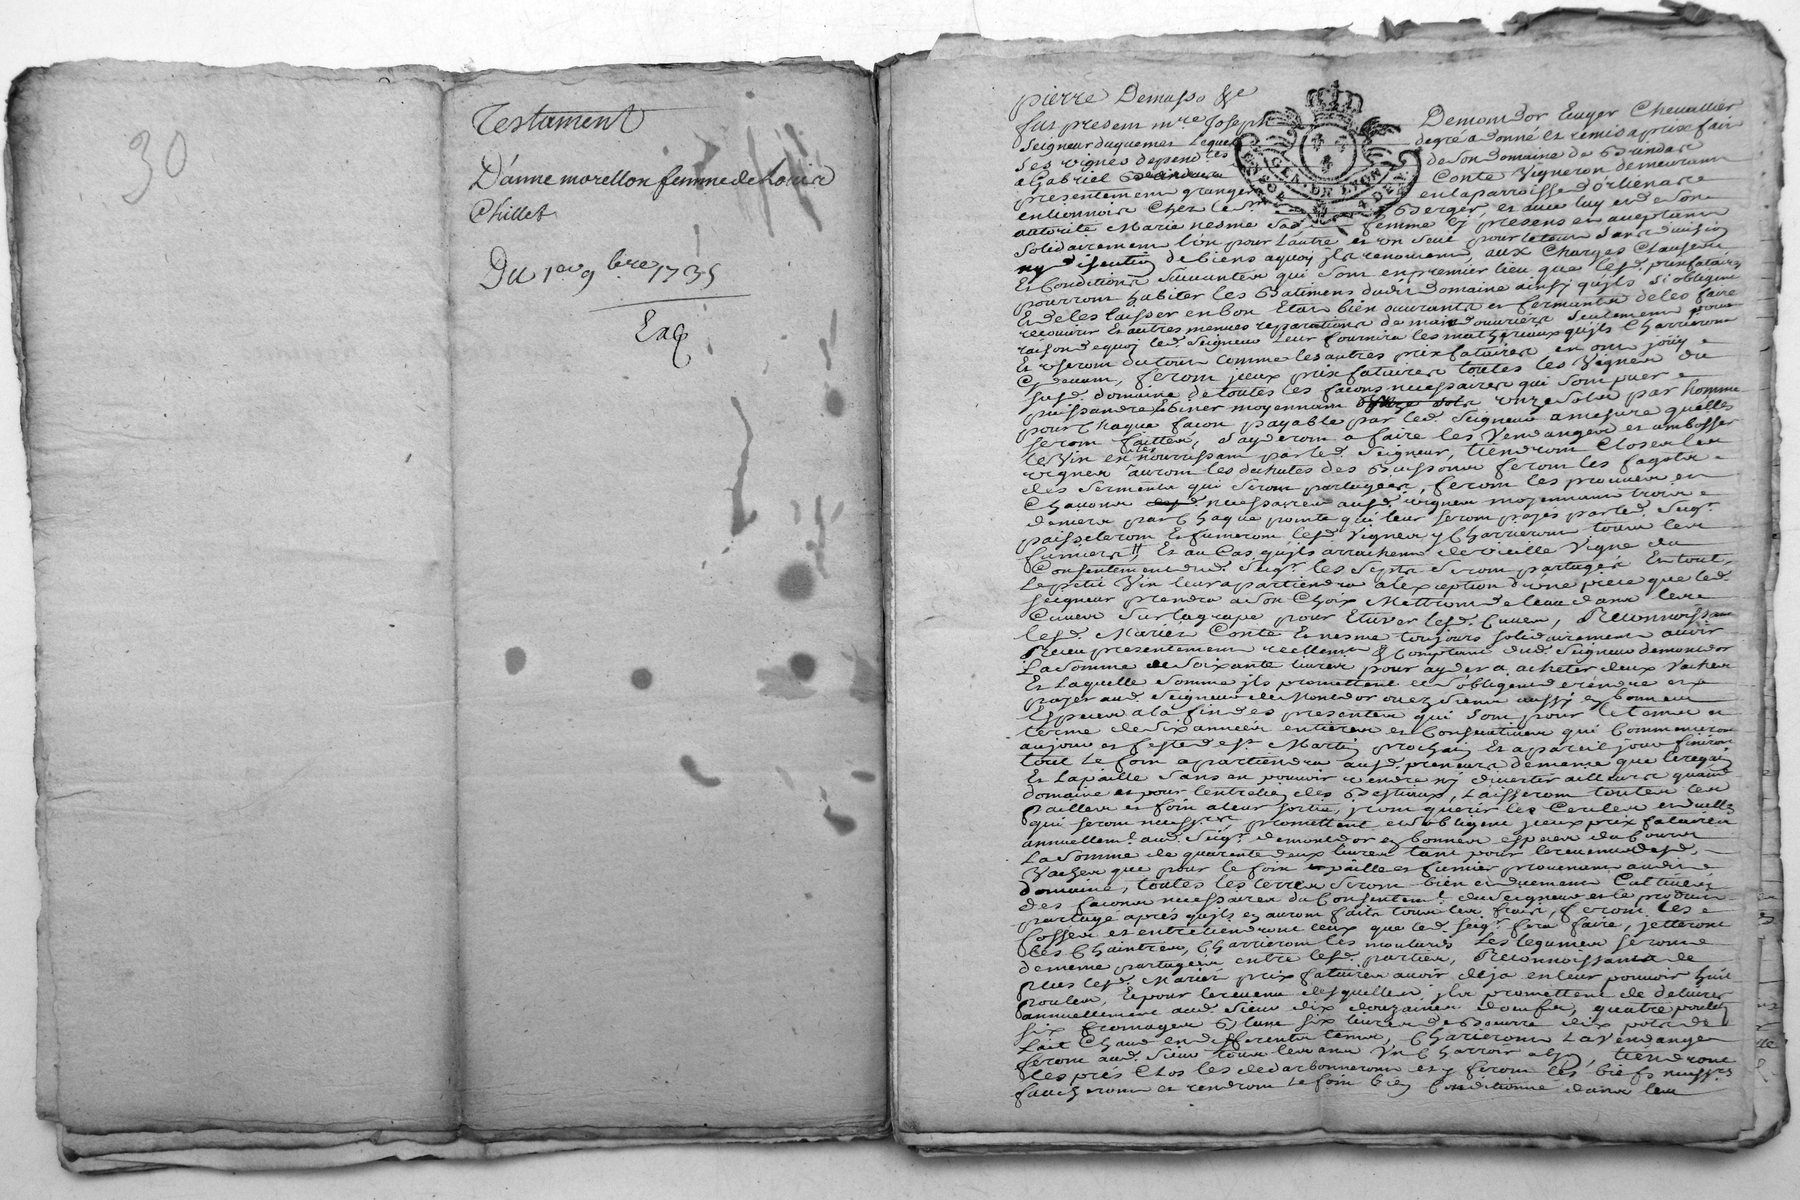 30
Testament
D'anne morellon femme de Louis
Chillet
Du 1er 9bre 1735
Exp
pierre Demasso &e
fut present mre Joseph Demondor Euger Chevallier
Seigneur duquemes Lequel degré a donné et remis a prix fait
Ses vignes depend.tes de Son Domaine de
a Gabriel Conte Vigneron demeurant
presentement granger en la parroisse d'orlienas
en lionnois Chez le Sr Berger, et avec luy et de Son
autorité Marie nesme Sa femme ici presens et acceptans
Solidairement l'un pour l'autre et un Seul pour le tout Sans division
ny discution de biens a quoy ils renoncent, aux Charges Clauses
Et Conditions Suivantes qui Sont en premier lieu que lesd. prixfataires
pourront habiter les Batimens dudit Domaine ainsy qu'ils S'obligent
Et de les laisser en bon Etat bien ouvrants et fermants de les faire
recouvrir Et autres menues reparations de main d'ouvriers Seulement pour
raison de quoy led. Seigneur Leur fournira les matheriaux qu'ils Charrieront
Et useront du tout Comme les autres prixfataires en ont jouy
Cy devant, feront jceux prixfataires toutes les Vignes du
susd. domaine de toutes les façons necessaires qui Sont puer
puissandre Et biner moyennant onze Sols par homme
pour Chaque façon payable par led. Seigneur a mesure qu'elles
seront faittes, S'ayderont a faire les Vendanges et ambosser
le Vin en les nourrissant par led. Seigneur, tiendront Closes les
vignes auront les dechutes des Buissons feront les fagots
des serments qui Seront partagées, feront les provins en
Chavons necessaires ausd. vignes moyennant trois
deniers par Chaque pointe qui leur seront payés par led. Seigr
paisseleront Et fumeront lesd. Vignes y Charrieront tous les
fumiers Et au Cas qu'ils arrachent de vieille Vigne du
Consentement dud. Seigr les Septs Seront partagés En tout,
Le petit Vin leur apartiendra a l'exception d'une piece que led.
Seigneur prendra a Son Choix Mettront de l'eau dans les
Cuves Sur la grape pour Etuver lesd. Cuves, Reconnoissant
lesd. Mariez Conte Et nesme toujours Solidairement avoir
Receu presentement reellemt & Comptant dud. Seigneur demondor
La Somme de Soixante livres pour ayder a acheter deux Vaches
Et Laquelle Somme ils promettent et S'obligent de rendre et
payer aud. Seigneur de Mondor ou ez Siens aussy en bonnes
Especes a la fin des presentes qui Sont pour le tems et
terme de Six années entieres et Consecutives qui Commenceront
au jour et feste de St Martin prochain Et a pareil jour finiront
tout Le foin apartiendra ausd. preneurs de meme que le regain
Et La paille Sans en pouvoir vendre ny divertir ailleurs quaud.
domaine et pour l'entretien des Bestiaux, Laisseront toutes les
pailles et foin a leur Sortie, jront querir les Cercles
qui seront necessres promettent et S'obligent jceux prix fataires
annuellemt aud. Seigr demondor en bonnes especes du Cours
La Somme de quarente deux livres tant pour le revenu desd.
Vaches que pour le foin paille et fumier provenant audit
domaine, toutes les terres Seront bien et duement Cultivées
des façons necessaires du Consentemt du Seigneur et le produit
partagé aprés qu'ils en auront faits tous les frais, feront les
fosses et entretiendront Ceux que led. Seigr fera faire, jetteront
les Chaintres, Charrieront les moutures Les legumes Seront
de meme partagés entre lesd. parties, Reconnoissants de
plus lesd. Mariez prix fataires avoir deja en leur pouvoir huit
poules, Et pour le revenu desquelles ils promettent de delivrer
annuellement aud. Sieur dix douzaines d'oeufs, quatre poulets
six fromages blanc six livres de Beurre dix pots de
Lait Chaud en differents tems, Charieront La vendange
feront aud. Sieur tous les ans un Charroir a Lyon, tiendront
Les prés Clos les dedarbonneront et y feront les biefs necessres
faucheront et rendront le foin bien Conditionné dans les